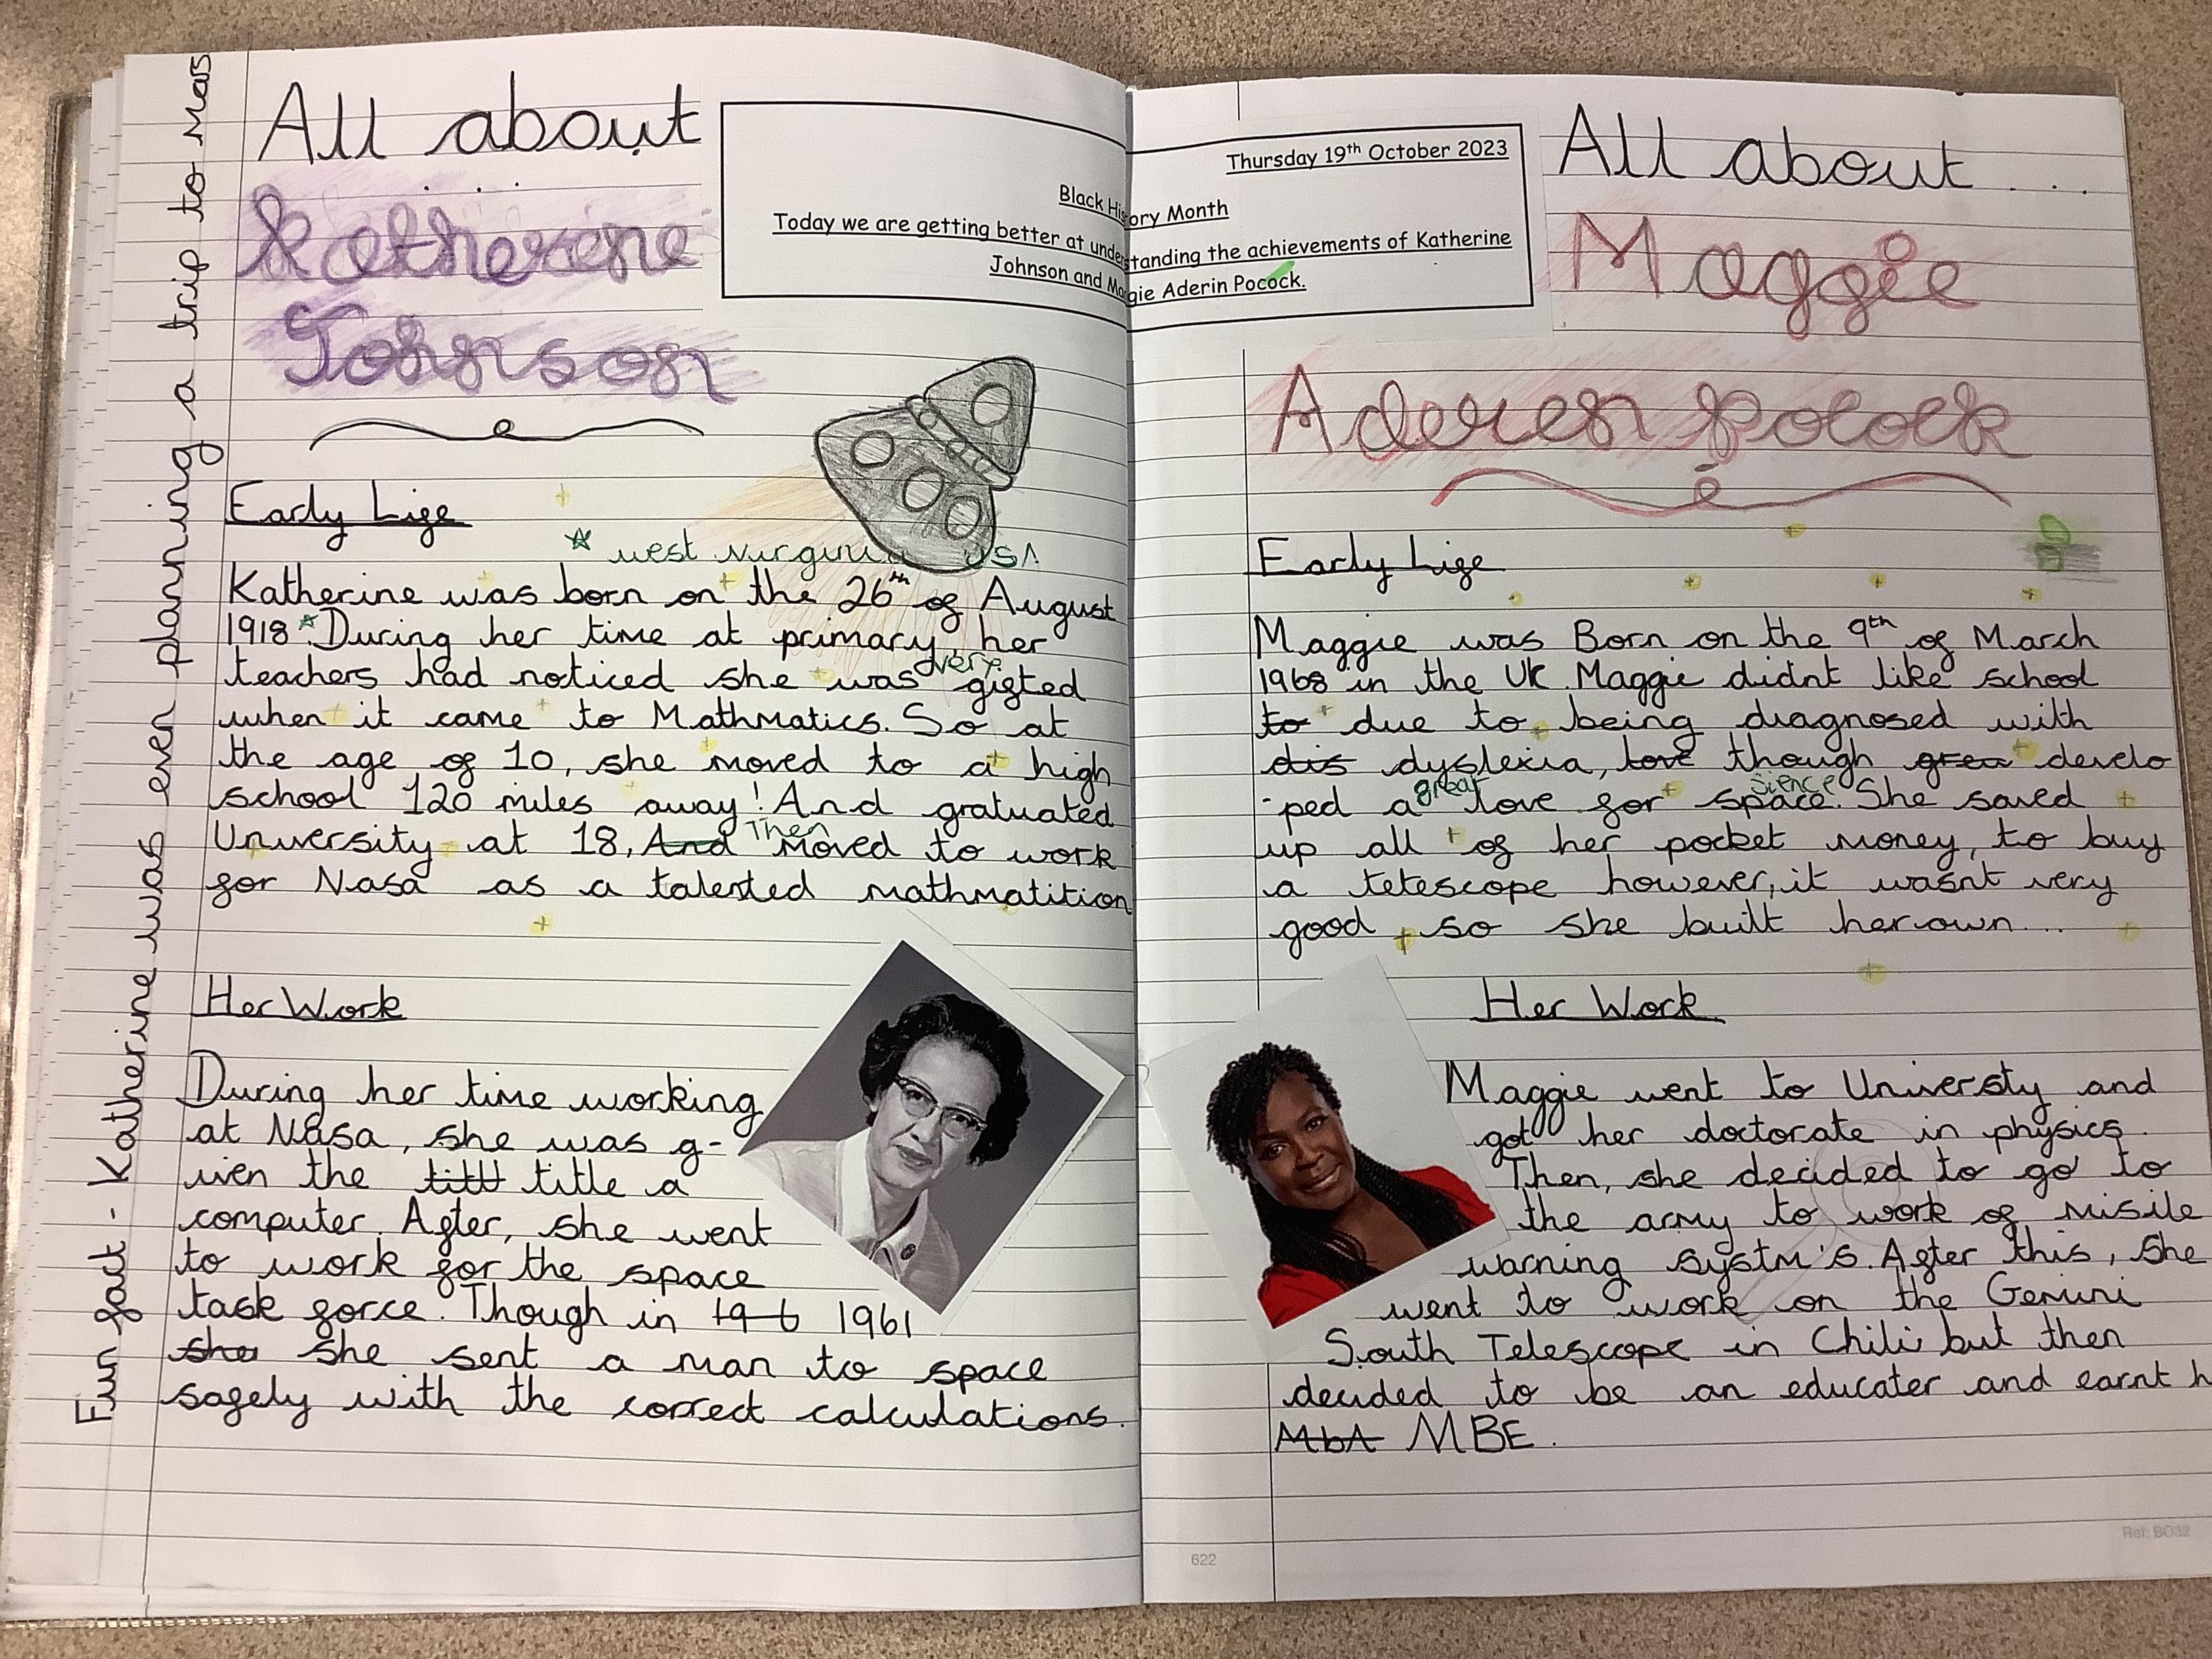 All about
Katherine
Johnson
Thursday 19th October 2023
Black History Month
Today we are getting better at understanding the achievements of Katherine
Johnson and Maggie Aderin Pocock.
Early Life
☆ west virginia USA
Katherine was born on the 26th of August
1918☆. During her time at primary, her
teachers had noticed she was very gifted
when it came to Mathmatics. So at
the age of 10, she moved to a high
school 120 miles away! And gratuated
University at 18, And Then moved to work
for Nasa as a talented mathmatition
Her Work
During her time working
at Nasa, she was g-
iven the titll title a
computer. After, she went
to work for the space
task force. Though in 196 1961
she she sent a man to space
safely with the correct calculations.
Fun fact - Katherine was even planning a trip to Mars
All about ...
Maggie
Aderen Pocock
Early Life
Maggie was Born on the 9th of March
1968 in the UK. Maggie didnt like school
to due to being diagnosed with
dis dyslexia, love though grew develo
-ped a great love for space science. She saved
up all of her pocket money, to buy
a telescope however, it wasn't very
good so she built her own...
Her Work
Maggie went to Universty and
got her doctorate in physics.
Then, she decided to go to
the army to work of misile
warning systm's. After this, she
went to work on the Gemini
South Telescope in Chili but then
decided to be an educater and earnt h
MbA MBE.
622
Ref: BO32